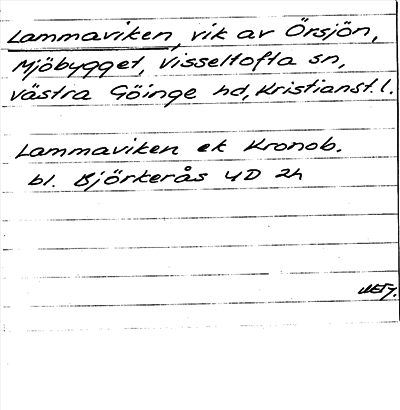 Lammaviken, vik av Örsjön,
Mjöbygget, Visseltofta sn,
Västra Göinge hd, Kristianst. l.
Lammaviken ek Kronob.
bl. Björkerås 4D 2h